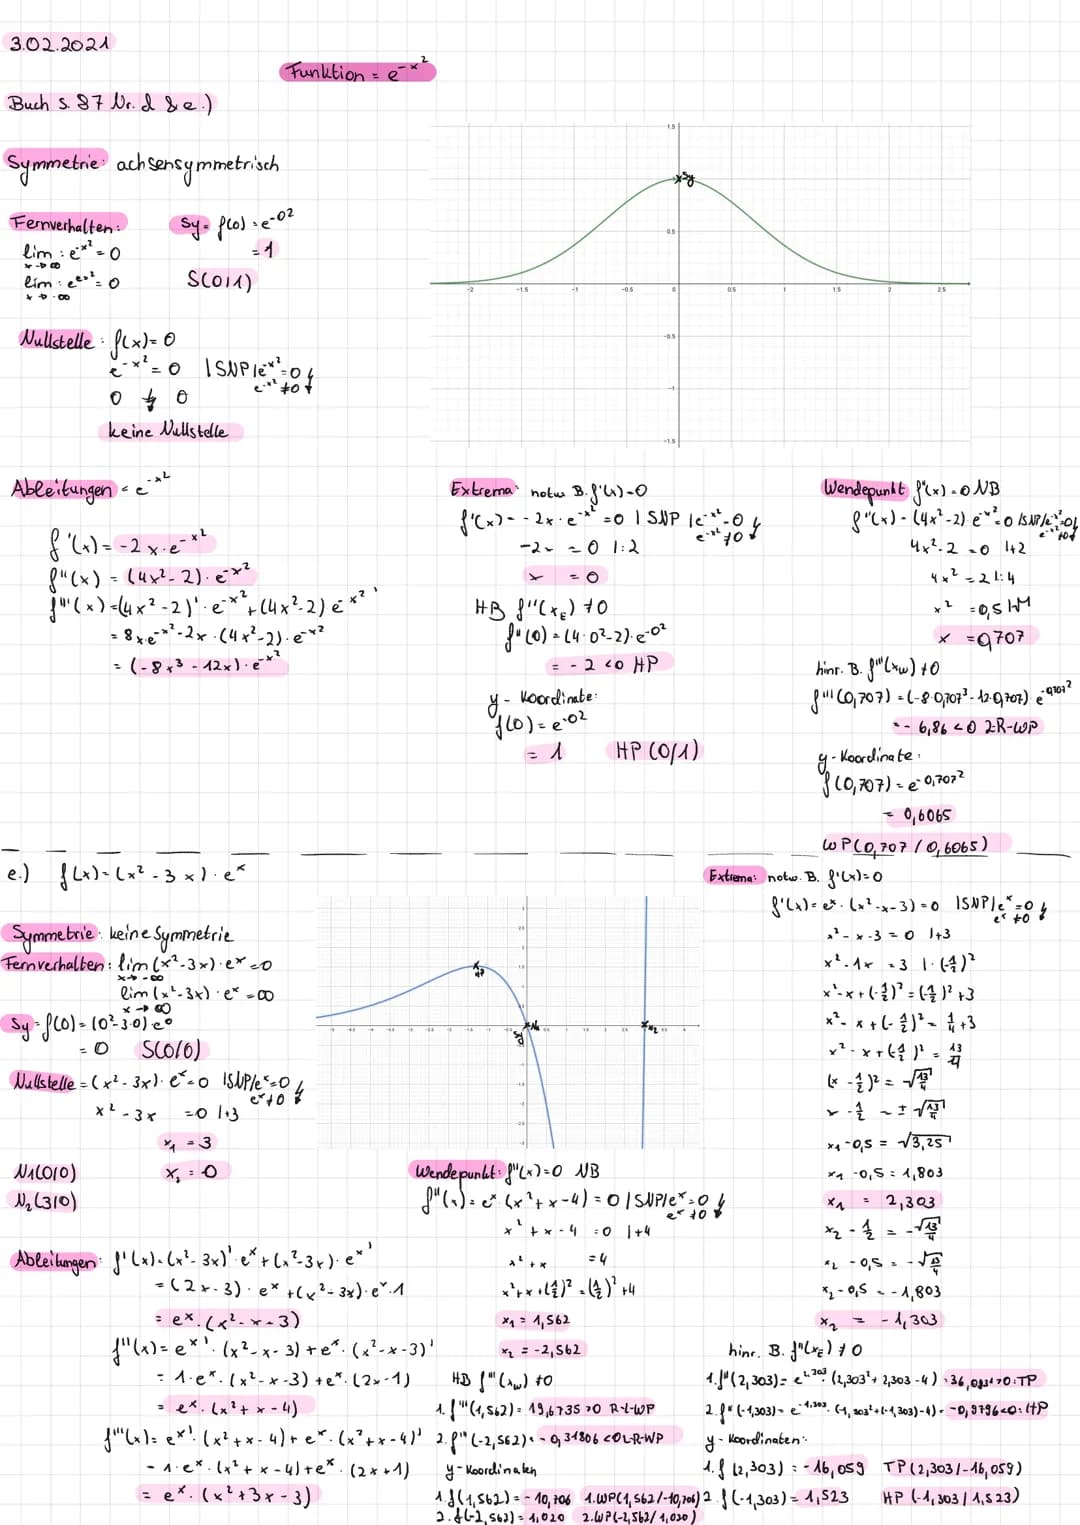 3.02.2021
Funktion = e^-x²
Buch S. 87 Nr. d & e.)
Symmetrie: achsensymmetrisch
Fernverhalten:
lim : e^-x² = 0
x→∞
lim : e^-x² = 0
x→-∞
Sy = f(0) = e^-0²
= 1
S(0|1)
Nullstelle: f(x) = 0
e^-x² = 0 | SNP | e^-x² = 0 ↯
e^-x² ≠ 0
0 ↯ 0
keine Nullstelle
Sy
Ableitungen = e^-x²
f'(x) = -2x · e^-x²
f''(x) = (4x² - 2) · e^-x²
f'''(x) = (4x² - 2)' · e^-x² + (4x² - 2) e^-x² '
= 8x·e^-x² - 2x · (4x² - 2) · e^-x²
= (-8x³ - 12x) · e^-x²
Extrema: notw B. f'(x) = 0
f'(x) = -2x · e^-x² = 0 | SNP | e^-x² = 0 ↯
e^-x² ≠ 0
-2x = 0 | : 2
x = 0
HB f''(x_E) ≠ 0
f''(0) = (4·0² - 2) · e^-0²
= -2 < 0 HP
y - Koordinate:
f(0) = e^-0²
= 1 HP (0/1)
Wendepunkt f''(x) = 0 NB
f''(x) = (4x² - 2) e^-x² = 0 | SNP/e^-x² = 0 ↯
e^-x² ≠ 0
4x² - 2 = 0 | +2
4x² = 2 | : 4
x² = 0,5 | √
x = 0,707
hinr. B. f'''(xw) ≠ 0
f'''(0,707) = (-8·0,707³ - 12·0,707) · e^-0,707²
= -6,86 < 0 L-R-WP
y - Koordinate:
f(0,707) = e^-0,707²
= 0,6065
WP (0,707 / 0,6065)
e.) f(x) = (x² - 3x) · e^x
Symmetrie: keine Symmetrie
Fernverhalten: lim (x² - 3x) · e^x = 0
x→-∞
lim (x² - 3x) · e^x = ∞
x→∞
Sy = f(0) = (0² - 3·0) e^0
= 0 S(0/0)
Nullstelle = (x² - 3x) · e^x = 0 | SNP/e^x = 0 ↯
e^x ≠ 0
x² - 3x = 0 | +3
x₁ = 3
x₂ = 0
N₁(0|0)
N₂(3|0)
HP
Sy
N₁
N₂
Ableitungen: f'(x) = (x² - 3x)' · e^x + (x² - 3x) · e^x '
= (2x - 3) · e^x + (x² - 3x) · e^x · 1
= e^x · (x² - x - 3)
f''(x) = e^x ' · (x² - x - 3) + e^x · (x² - x - 3)'
= 1 · e^x · (x² - x - 3) + e^x · (2x - 1)
= e^x · (x² + x - 4)
f'''(x) = e^x ' · (x² + x - 4) + e^x · (x² + x - 4)'
= 1 · e^x · (x² + x - 4) + e^x · (2x + 1)
= e^x · (x² + 3x - 3)
Wendepunkt: f''(x) = 0 NB
f''(x) = e^x · (x² + x - 4) = 0 | SNP/e^x = 0 ↯
e^x ≠ 0
x² + x - 4 = 0 | +4
x² + x = 4
x² + x + (1/2)² = (1/2)² + 4
x₁ = 1,562
x₂ = -2,562
HB f'''(xw) ≠ 0
1. f'''(1,562) = 19,6735 > 0 R-L-WP
2. f'''(-2,562) = -0,31806 < 0 L-R-WP
y - Koordinaten
1. f(1,562) = -10,706 1. WP(1,562/-10,706)
2. f(-2,562) = 1,020 2. WP(-2,562/1,020)
Extrema: notw. B. f'(x) = 0
f'(x) = e^x · (x² - x - 3) = 0 | SNP/e^x = 0 ↯
e^x ≠ 0
x² - x - 3 = 0 | +3
x² - 1x = 3 | · (-1/2)²
x² - x + (-1/2)² = (-1/2)² + 3
x² - x + (-1/2)² = 1/4 + 3
x² - x + (-1/2)² = 13/4
(x - 1/2)² = √13/4
x - 1/2 = ± √13/4
x₁ - 0,5 = √3,25
x₁ - 0,5 = 1,803
x₁ = 2,303
x₂ - 1/2 = -√13/4
x₂ - 0,5 = -√13/4
x₂ - 0,5 = -1,803
x₂ = -1,303
hinr. B. f''(x_E) ≠ 0
1. f''(2,303) = e^2,303 · (2,303² + 2,303 - 4) = 36,083 > 0 : TP
2. f''(-1,303) = e^-1,303 · (-1,303² + (-1,303) - 4) = -0,9796 < 0 : HP
y - Koordinaten:
1. f(2,303) = -16,059 TP (2,303/-16,059)
2. f(-1,303) = 1,523 HP (-1,303 / 1,523)